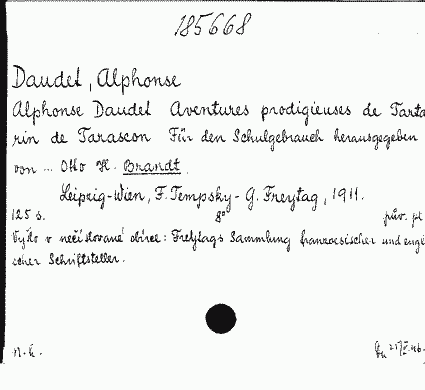 185668
Daudet, Alphonse
Alphonse Daudet Aventures prodigieuses de Tarta
rin de Tarascon Für den Schulgebrauch herausgegeben
von ... Otto H. Brandt.
Leipzig-Wien, F. Tempsky - G. Freytag, 1911.
125 s. 8° pův. pl
Vyšlo v nečíslované sbírce: Freytags Sammlung französischer und engl
scher Schriftsteller.